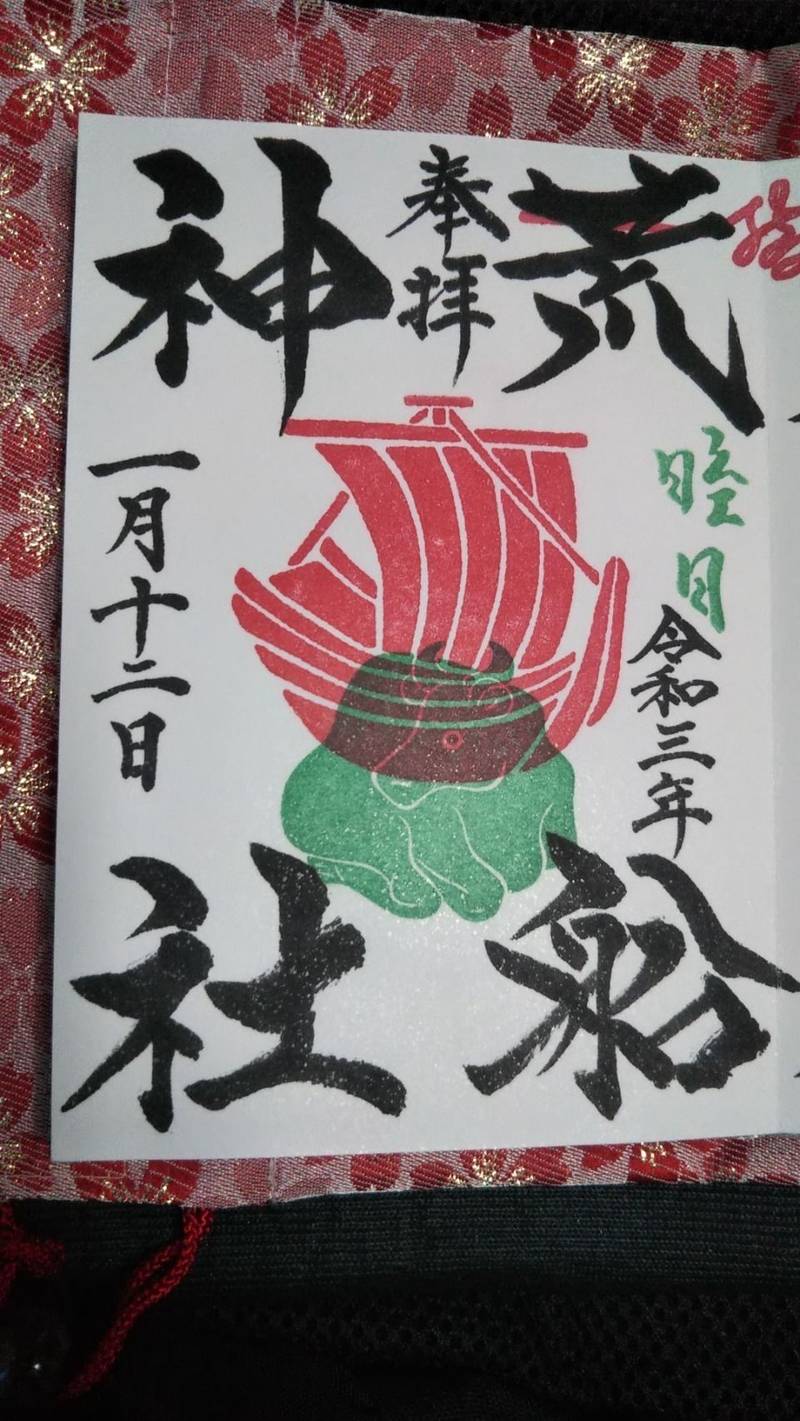 荒船
睦月
令和三年
奉拝
神社
一月十二日